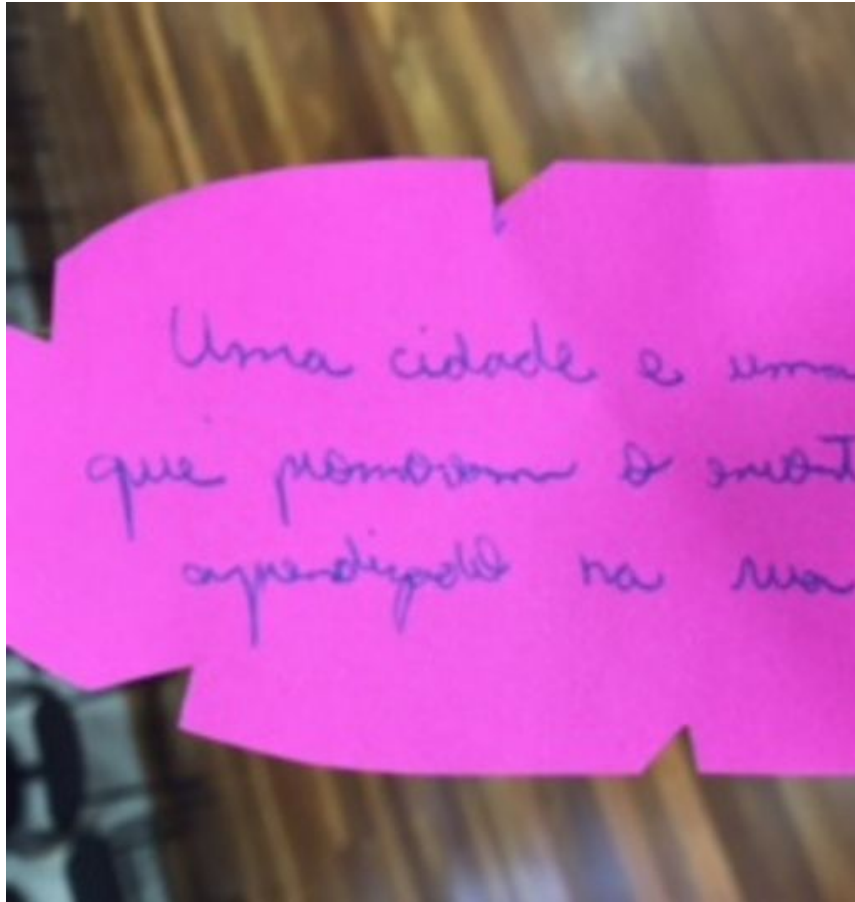 Uma cidade e uma
que promovam o encont
aprendizado na rua